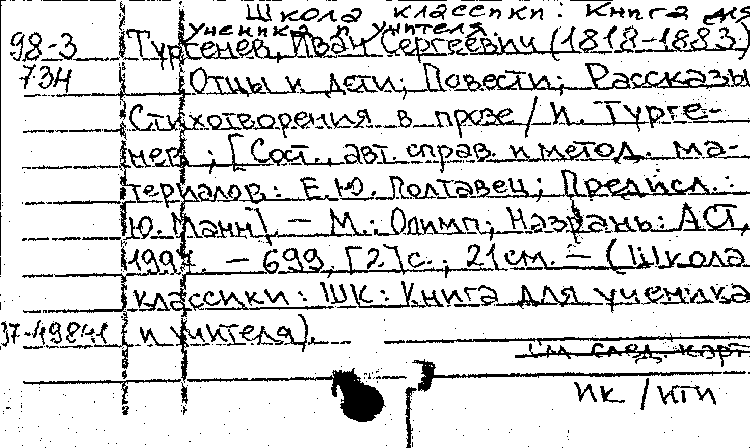 Школа классики: Книга для
ученика и учителя.
98-3 Тургенев, Иван Сергеевич (1818-1883)
734 Отцы и дети; Повести; Рассказы
Стихотворения в прозе / И. Турге-
нев; [Сост., авт. справ. и метод. ма-
териалов: Е.Ю. Полтавец; Предисл.:
Ю. Манн]. - М.: Олимп; Назрань: АСТ,
1997. - 699, [2] с.; 21 см. - (Школа
классики: ШК: Книга для ученика
37-49841 и учителя).
см след. карт
ИК / ИТИ